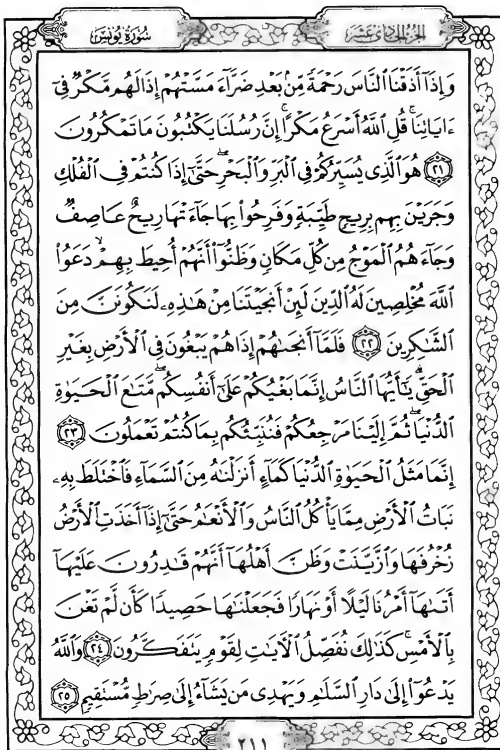 سُورَةُ يُونُسَ
الجزء الحادي عشر
وَإِذَآ أَذَقْنَا ٱلنَّاسَ رَحْمَةً مِّنۢ بَعْدِ ضَرَّآءَ مَسَّتْهُمْ إِذَا لَهُم مَّكْرٌ فِىٓ
ءَايَاتِنَاۚ قُلِ ٱللَّهُ أَسْرَعُ مَكْرًاۚ إِنَّ رُسُلَنَا يَكْتُبُونَ مَا تَمْكُرُونَ
۝٢١ هُوَ ٱلَّذِى يُسَيِّرُكُمْ فِى ٱلْبَرِّ وَٱلْبَحْرِۖ حَتَّىٰٓ إِذَا كُنتُمْ فِى ٱلْفُلْكِ
وَجَرَيْنَ بِهِم بِرِيحٍ طَيِّبَةٍ وَفَرِحُوا۟ بِهَا جَآءَتْهَا رِيحٌ عَاصِفٌ
وَجَآءَهُمُ ٱلْمَوْجُ مِن كُلِّ مَكَانٍ وَظَنُّوٓا۟ أَنَّهُمْ أُحِيطَ بِهِمْۙ دَعَوُا۟
ٱللَّهَ مُخْلِصِينَ لَهُ ٱلدِّينَ لَئِنْ أَنجَيْتَنَا مِنْ هَٰذِهِۦ لَنَكُونَنَّ مِنَ
ٱلشَّٰكِرِينَ ۝٢٢ فَلَمَّآ أَنجَىٰهُمْ إِذَا هُمْ يَبْغُونَ فِى ٱلْأَرْضِ بِغَيْرِ
ٱلْحَقِّۗ يَٰٓأَيُّهَا ٱلنَّاسُ إِنَّمَا بَغْيُكُمْ عَلَىٰٓ أَنفُسِكُمۖ مَّتَٰعَ ٱلْحَيَوٰةِ
ٱلدُّنْيَاۖ ثُمَّ إِلَيْنَا مَرْجِعُكُمْ فَنُنَبِّئُكُم بِمَا كُنتُمْ تَعْمَلُونَ ۝٢٣
إِنَّمَا مَثَلُ ٱلْحَيَوٰةِ ٱلدُّنْيَا كَمَآءٍ أَنزَلْنَٰهُ مِنَ ٱلسَّمَآءِ فَٱخْتَلَطَ بِهِۦ
نَبَاتُ ٱلْأَرْضِ مِمَّا يَأْكُلُ ٱلنَّاسُ وَٱلْأَنْعَٰمُ حَتَّىٰٓ إِذَآ أَخَذَتِ ٱلْأَرْضُ
زُخْرُفَهَا وَٱزَّيَّنَتْ وَظَنَّ أَهْلُهَآ أَنَّهُمْ قَٰدِرُونَ عَلَيْهَآ
أَتَىٰهَآ أَمْرُنَا لَيْلًا أَوْ نَهَارًا فَجَعَلْنَٰهَا حَصِيدًا كَأَن لَّمْ تَغْنَ
بِٱلْأَمْسِۚ كَذَٰلِكَ نُفَصِّلُ ٱلْآيَٰتِ لِقَوْمٍ يَتَفَكَّرُونَ ۝٢٤ وَٱللَّهُ
يَدْعُوٓا۟ إِلَىٰ دَارِ ٱلسَّلَٰمِ وَيَهْدِى مَن يَشَآءُ إِلَىٰ صِرَٰطٍ مُّسْتَقِيمٍ ۝٢٥
٢١١